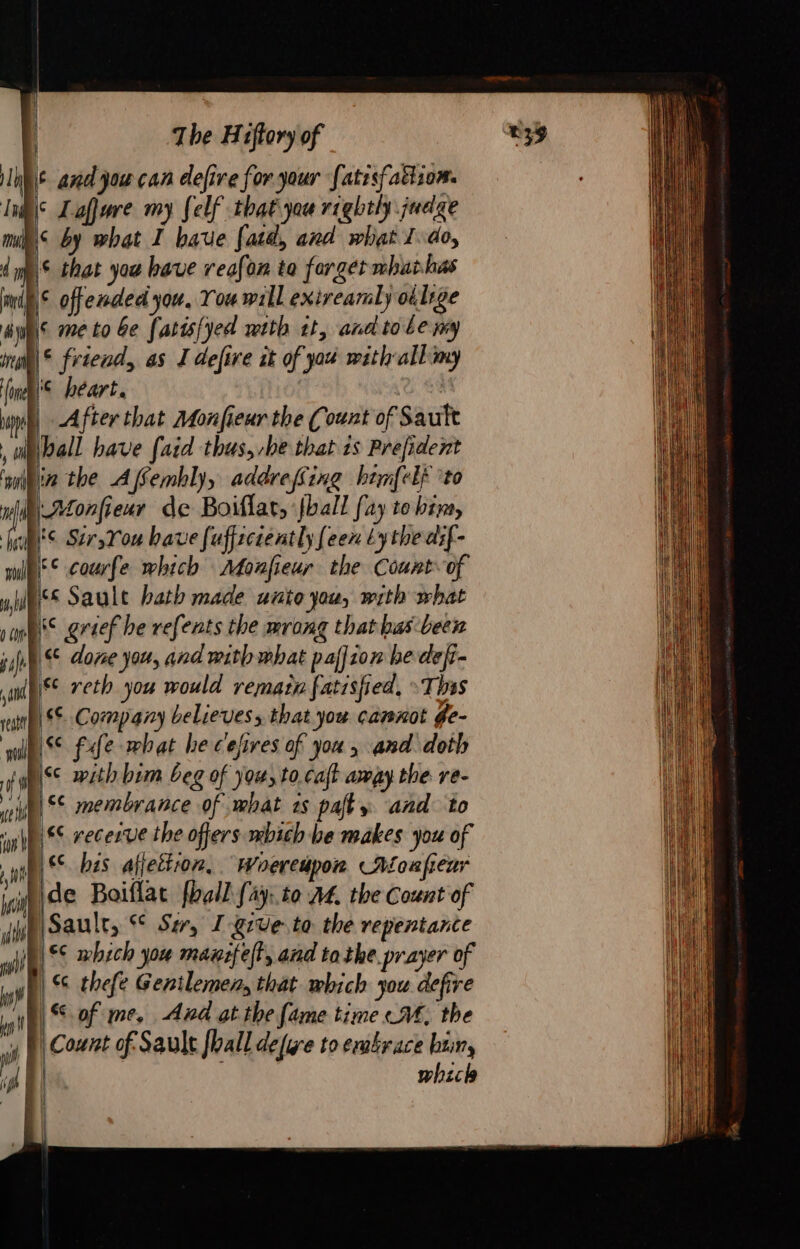 The Hiſtory of
139
“ and you can deſire for your ſatisfaction.
“ I aſſure my ſelf that you rightly judge
“ by what I have ſaid, and what I do,
“ that you have reaſon to forget what has
“ offended you. You will extreamly oblige
“ me to be ſatisfyed with it, and to be my
“ friend, as I deſire it of you with all my
“ heart.
After that Monſieur the Count of Sault
ſhall have ſaid thus, he that is Preſident
in the Aſſembly, addreſſing himſelf to
Monſieur de Boiſſat, ſhall ſay to him,
“ Sir, You have ſufficiently ſeen by the diſ-
“ courſe which Monſieur the Count of
“ Sault hath made unto you, with what
“ grief he reſents the wrong that has been
“ done you, and with what paſſion he deſi-
“ reth you would remain ſatisfied. This
“ Company believes, that you cannot re-
“ fuſe what he deſires of you, and doth
“ with him beg of you, to caſt away the re-
“ membrance of what is paſt, and to
“ receive the offers which he makes you of
“ his affection. Whereupon Monſieur
de Boiſſat ſhall ſay to M. the Count of
Sault, “ Sir, I give to the repentance
“ which you manifeſt, and to the prayer of
“ theſe Gentlemen, that which you deſire
“ of me. And at the ſame time M. the
Count of Sault ſhall deſire to embrace him,
which